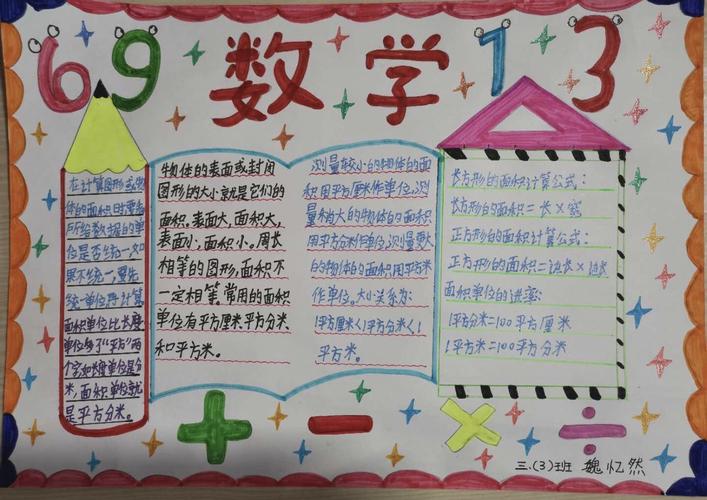 69 数学 13
在计算图形或物
体的面积时,要看
所给数据的单
位是否统一,如
果不统一,要先
统一单位再计算
面积单位比长度
单位多了“平方”两
个字,如长度单位是分
米,面积单位就
是平方分米。
物体的表面或封闭
图形的大小就是它们的
面积,表面大,面积大,
表面小,面积小。周长
相等的图形,面积不
一定相等。常用的面积
单位有平方厘米、平方分米
和平方米。
测量较小的物体的面
积用平方厘米作单位,测
量稍大的物体的面积
用平方分米作单位,测量较大
的物体的面积用平方米
作单位。大小关系为:
1平方厘米<1平方分米<1
平方米。
长方形的面积计算公式:
长方形的面积=长×宽
正方形的面积计算公式:
正方形的面积=边长×边长
面积单位的进率:
1平方分米=100平方厘米
1平方米=100平方分米
+ − × ÷
三.(3)班 魏忆然